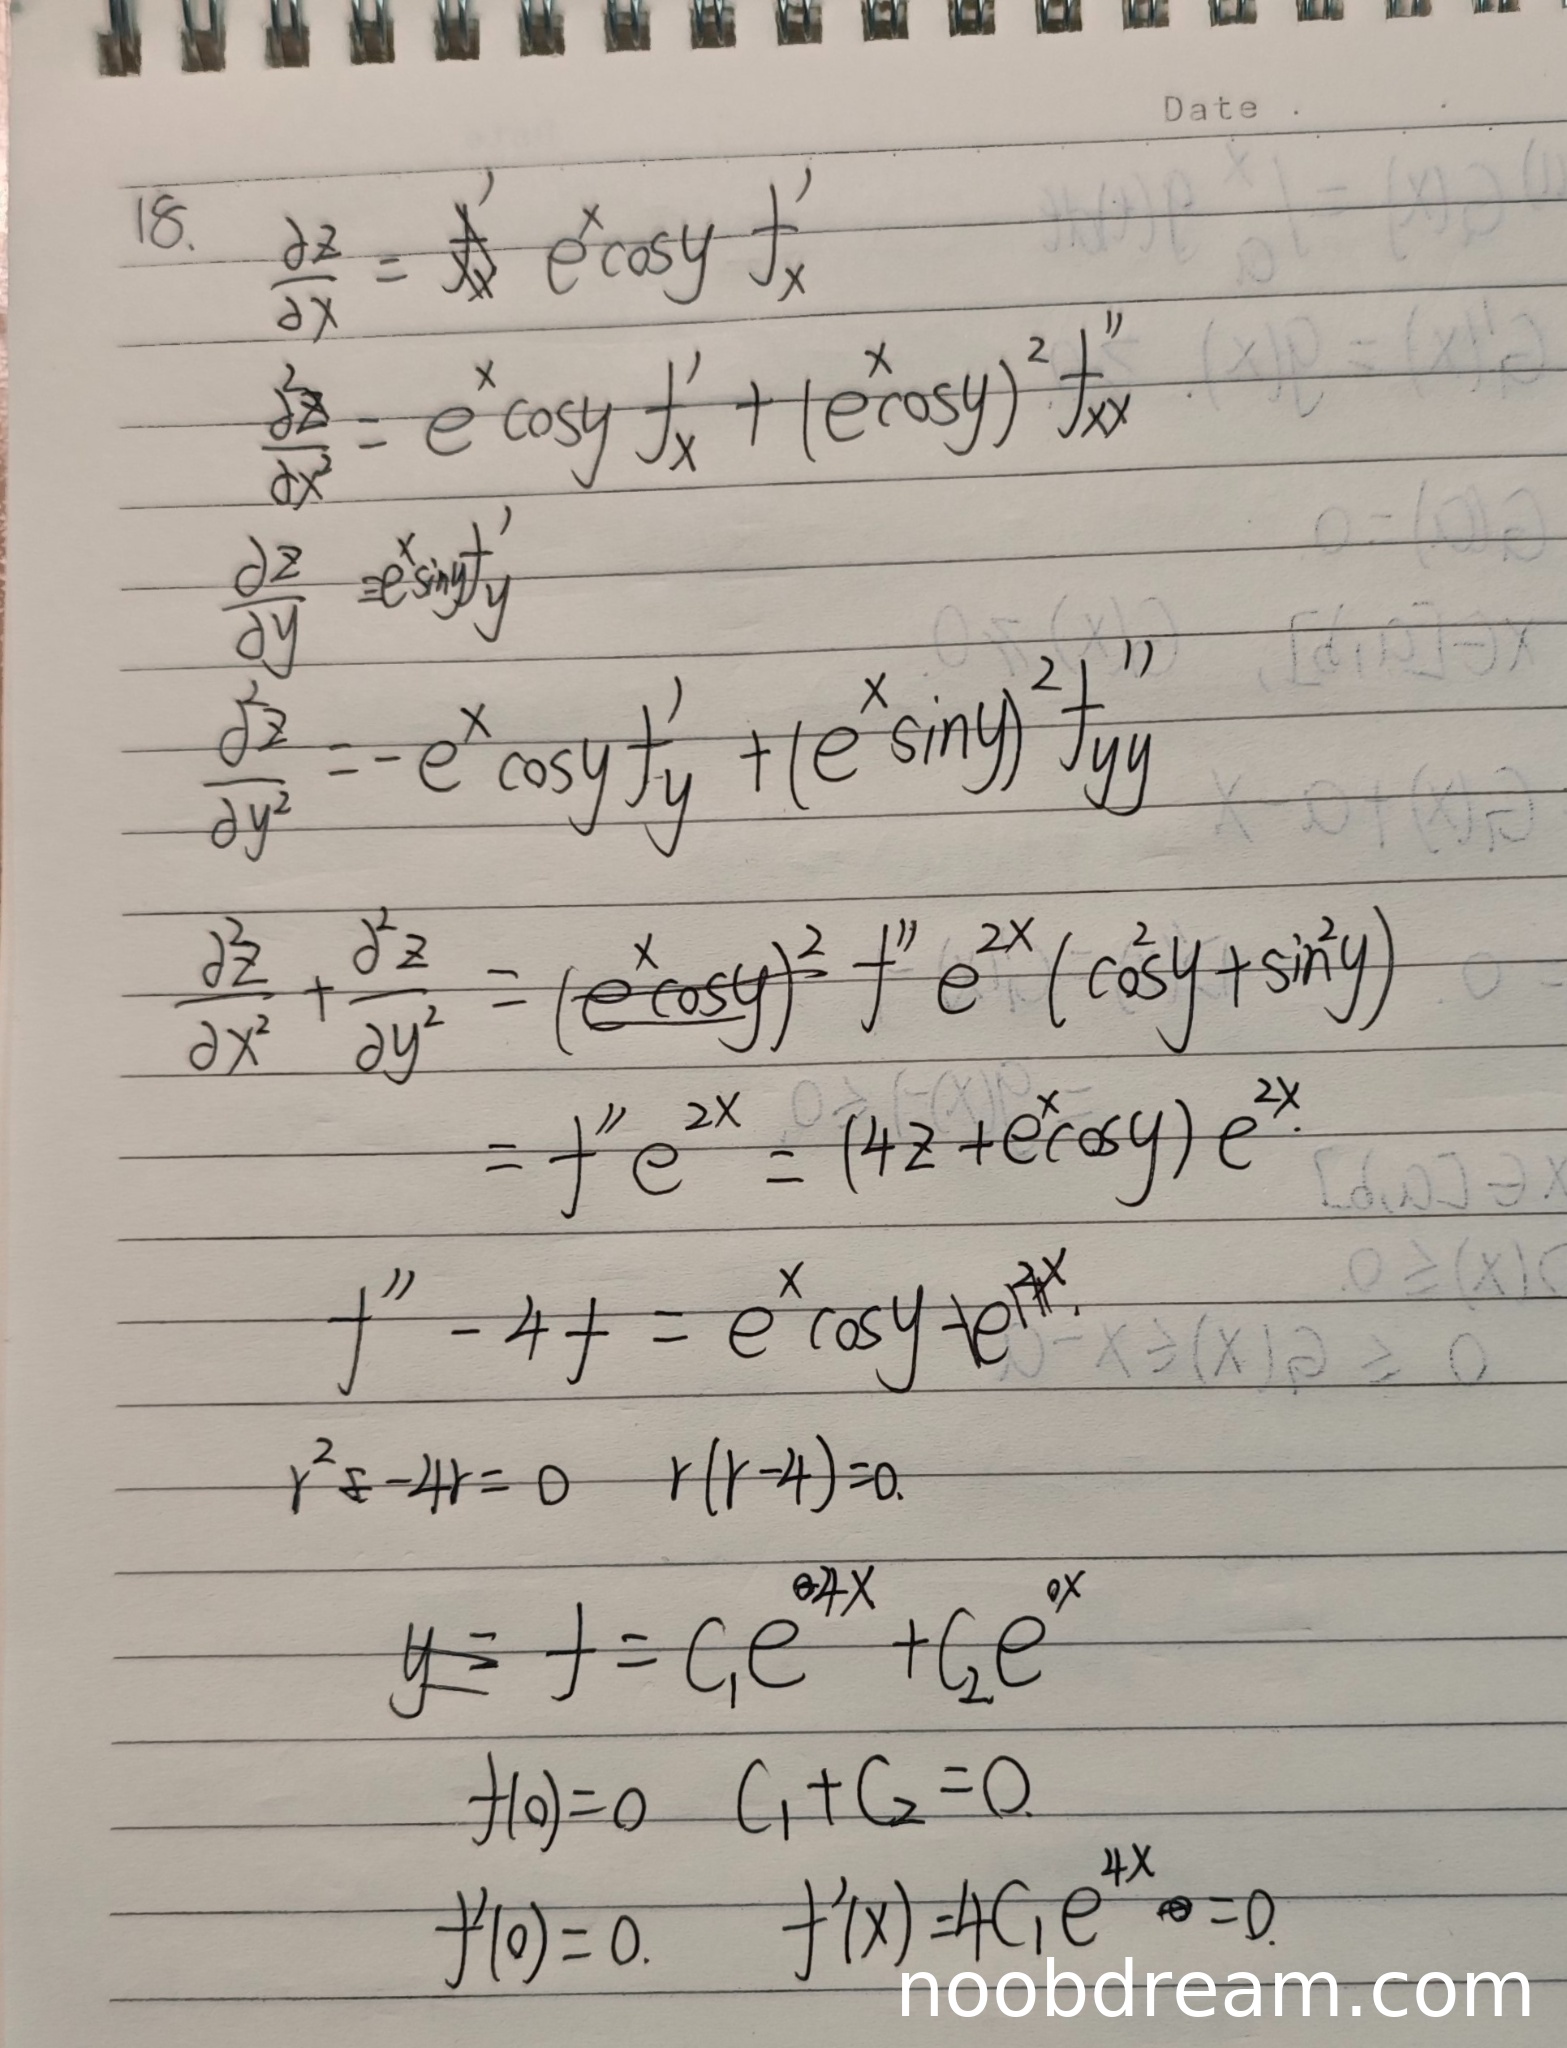 Date .
18. ∂z/∂x = e^x cosy f'_x
∂²z/∂x² = e^x cosy f'_x + (e^x cosy)² f''_xx
∂z/∂y = e^x siny f'_y
∂²z/∂y² = - e^x cosy f'_y + (e^x siny)² f''_yy
∂²z/∂x² + ∂²z/∂y² = f'' e^2x (cos²y + sin²y)
= f'' e^2x = (4z + e^x cosy) e^2x.
f'' - 4f = e^x cosy
r² - 4r = 0 r(r-4) = 0.
f = C₁e^4x + C₂e^0x
f(0) = 0 C₁ + C₂ = 0.
f'(0) = 0. f'(x) = 4C₁e^4x = 0.
noobdream.com